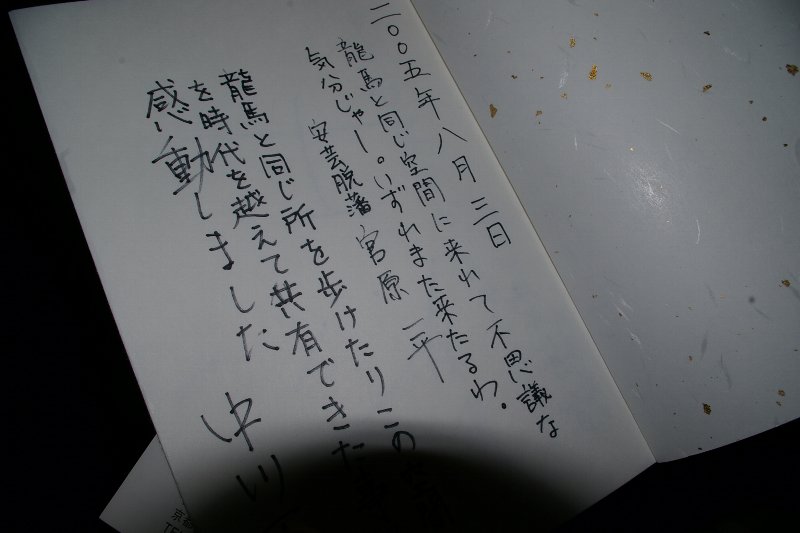 二〇〇五年八月三日
龍馬と同じ空間に来れて不思議な
気分じゃー。いずれまた来たるわ。
安芸脱藩 宮原 一平
龍馬と同じ所を歩けたりこの空間
を時代を越えて共有できた
感動しました 中川
京都